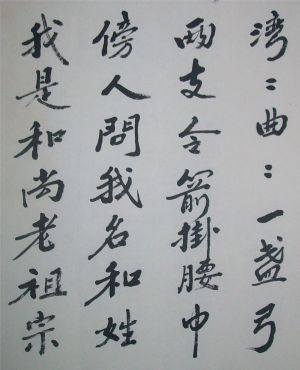 湾〻曲〻一盏弓
両支令箭掛腰中
傍人問我名和姓
我是和尚老祖宗